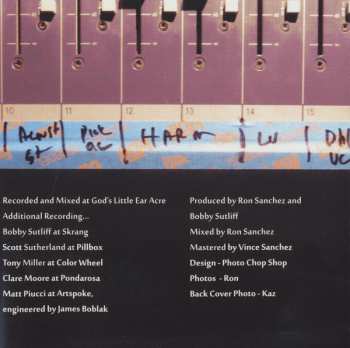 10 11 12 13 14 15
Acoust Pick HARM
St ac
Recorded and Mixed at God's Little Ear Acre
Additional Recording...
Bobby Sutliff at Skrang
Scott Sutherland at Pillbox
Tony Miller at Color Wheel
Clare Moore at Pondarosa
Matt Piucci at Artspoke,
engineered by James Boblak
Produced by Ron Sanchez and
Bobby Sutliff
Mixed by Ron Sanchez
Mastered by Vince Sanchez
Design - Photo Chop Shop
Photos - Ron
Back Cover Photo - Kaz